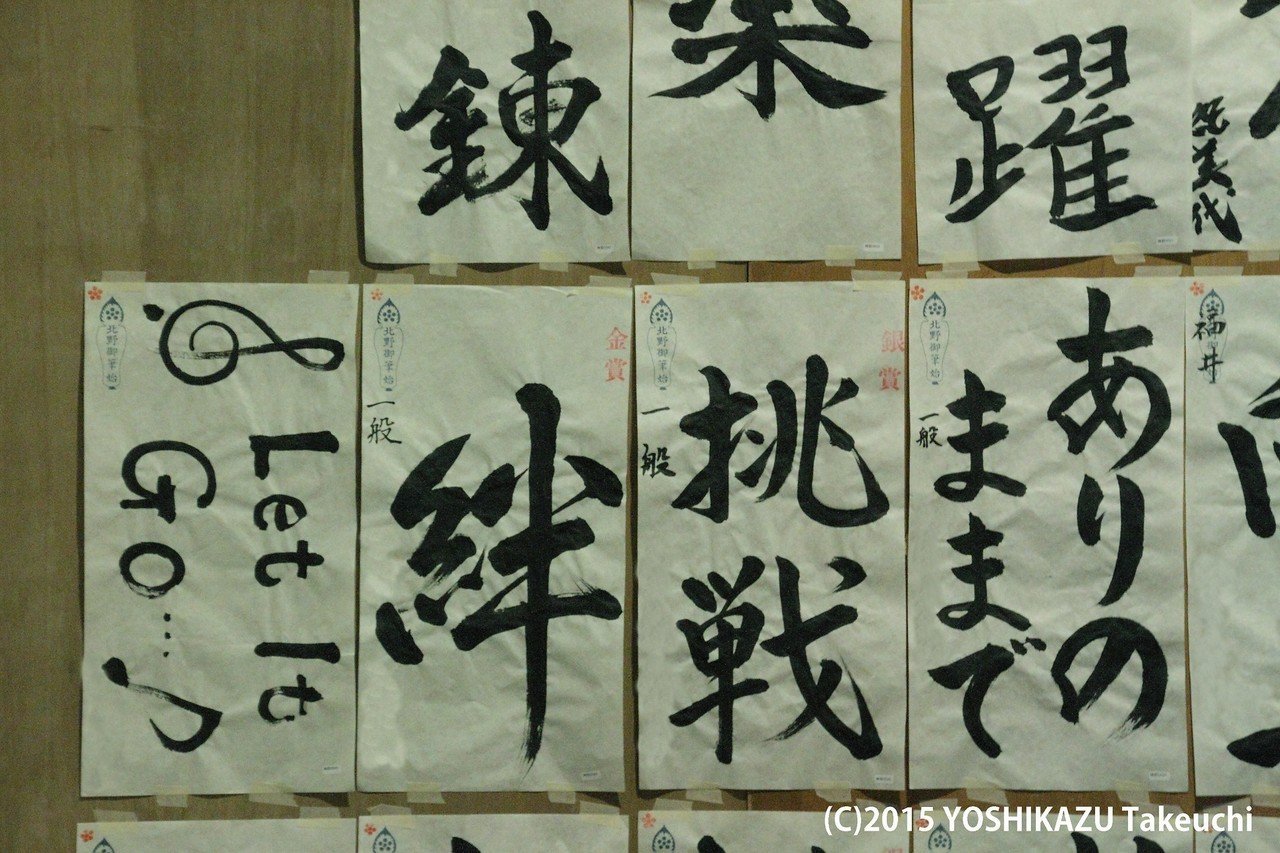 錬
楽
躍
美代
北野御筆始
Let It
Go...
北野御筆始
一般
金賞
絆
北野御筆始
一般
銀賞
挑戦
北野御筆始
一般
ありの
ままで
福井
(C)2015 YOSHIKAZU Takeuchi